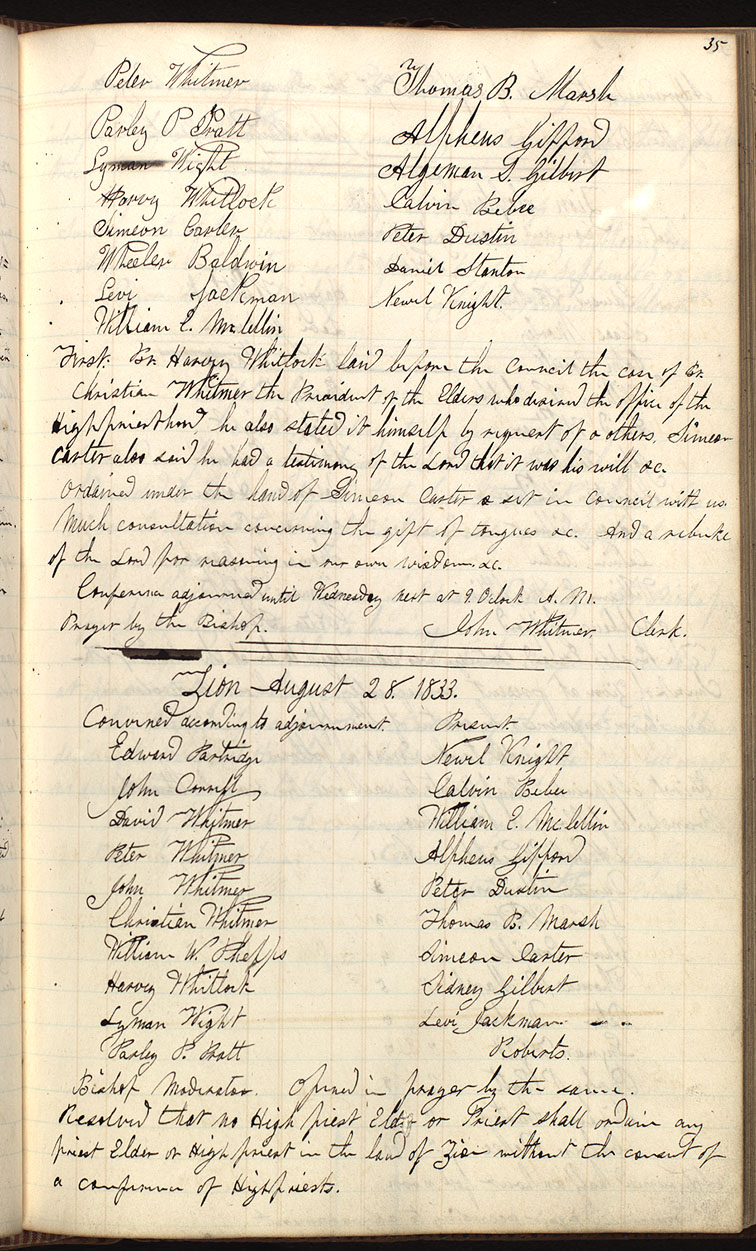 35
Peter Whitmer
Parley P Pratt
Lyman Wight
Harvey Whitlock
Simeon Carter
Wheeler Baldwin
Levi Jackman
William E. Mc.lellin
Thomas B. Marsh
Alpheus Gifford
Algernon S. Gilbert
Calvin Bebee
Peter Dustin
Daniel Stanton
Newel Knight.
First. Br. Harvey Whitlock laid before the council the case of Br.
Christian Whitmer the President of the Elders who desired the office of the
Highpriesthood he also stated it himself by request of others. Simeon
Carter also said he had a testimony of the Lord that it was his will &c.
Ordained under the hand of Simeon Carter & set in council with us.
Much consultation concerning the gift of tongues &c. And a rebuke
of the Lord for reasoning in our own wisdom. &c.
Conference adjourned until Wednesday next at 9. Oclock A. M.
Prayer by the Bishop.
John Whitmer. Clerk.
Zion August 28. 1833.
Convened according to adjournment. Present.
Edward Partridge
John Corrill
David Whitmer
Peter Whitmer
John Whitmer
Christian Whitmer
William W. Phelps
Harvey Whitlock
Lyman Wight
Parley P. Pratt
Newel Knight
Calvin Bebee
William E. Mc.lellin
Alpheus Gifford
Peter Dustin
Thomas B. Marsh
Simeon Carter
Sidney Gilbert
Levi Jackman
Roberts.
Bishop Moderator. Opened in prayer by the same.
Resolved that no High priest Elder or Priest shall ordain any
priest Elder or High priest in the land of Zion without the consent of
a conference of Highpriests.